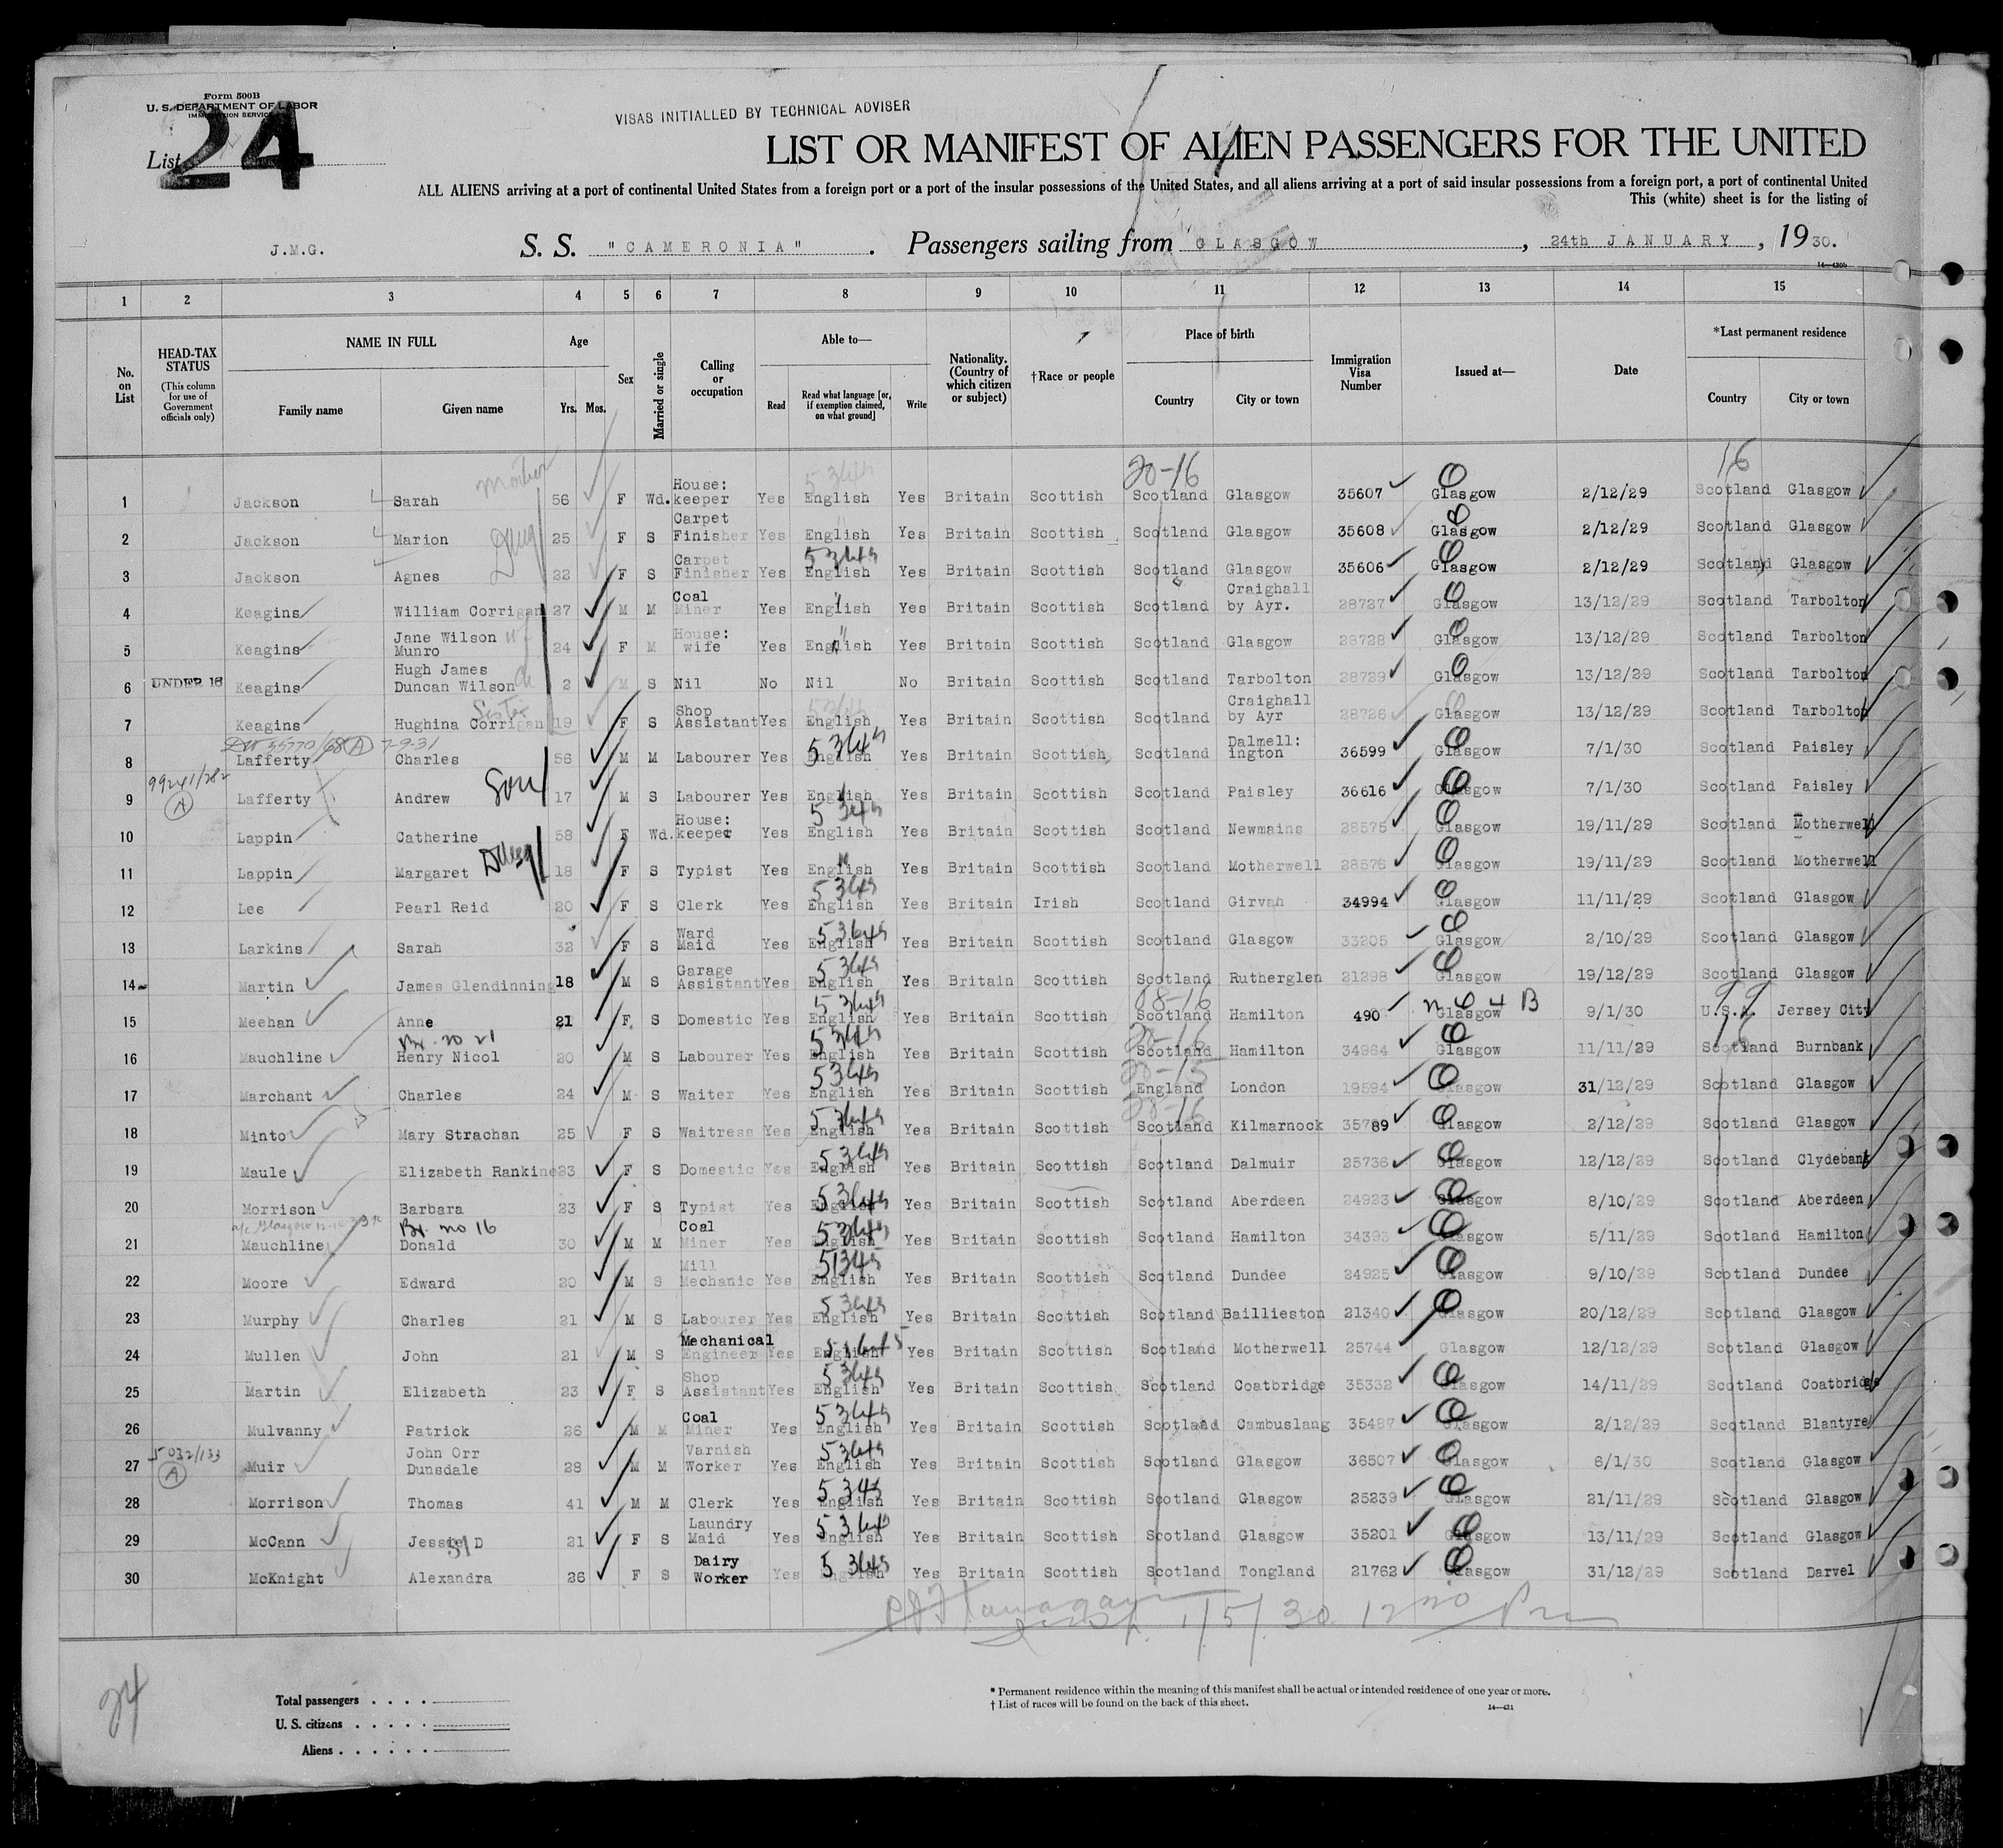 Form 500B
U. S. DEPARTMENT OF LABOR
IMMIGRATION SERVICE
List 24
VISAS INITIALLED BY TECHNICAL ADVISER
LIST OR MANIFEST OF ALIEN PASSENGERS FOR THE UNITED
ALL ALIENS arriving at a port of continental United States from a foreign port or a port of the insular possessions of the United States, and all aliens arriving at a port of said insular possessions from a foreign port, a port of continental United
This (white) sheet is for the listing of
J.M.G. S. S. "CAMERONIA". Passengers sailing from GLASGOW, 24th JANUARY, 1930.
14—430b
1 2 3 4 5 6 7 8 9 10 11 12 13 14 15
No. on List
HEAD-TAX STATUS (This column for use of Government officials only)
NAME IN FULL Family name Given name
Age Yrs. Mos.
Sex
Married or single
Calling or occupation
Able to— Read Read what language [or, if exemption claimed, on what ground] Write
Nationality. (Country of which citizen or subject)
†Race or people
Place of birth Country City or town
Immigration Visa Number
Issued at—
Date
*Last permanent residence Country City or town
Mother 5 3645 20-16 16
1 Jackson Sarah 56 F Wd. House: keeper Yes English Yes Britain Scottish Scotland Glasgow 35607 Glasgow 2/12/29 Scotland Glasgow
2 Jackson Marion Daug 25 F S Carpet Finisher Yes English Yes Britain Scottish Scotland Glasgow 35608 Glasgow 2/12/29 Scotland Glasgow
3 Jackson Agnes 22 F S Carpet Finisher Yes 53645 English Yes Britain Scottish Scotland Glasgow 35606 Glasgow 2/12/29 Scotland Glasgow
4 Keagins William Corrigan 27 M M Coal Miner Yes English Yes Britain Scottish Scotland Craighall by Ayr. 28727 Glasgow 13/12/29 Scotland Tarbolton
5 Keagins Jane Wilson Munro 24 F M House: wife Yes English Yes Britain Scottish Scotland Glasgow 28728 Glasgow 13/12/29 Scotland Tarbolton
6 UNDER 16 Keagins Hugh James Duncan Wilson Ch 2 M S Nil No Nil No Britain Scottish Scotland Tarbolton 28729 Glasgow 13/12/29 Scotland Tarbolton
7 Keagins Hughina Corrigan Sister 19 F S Shop Assistant Yes English Yes Britain Scottish Scotland Craighall by Ayr 28726 Glasgow 13/12/29 Scotland Tarbolton
7-9-31
8 Lafferty Charles 56 M M Labourer Yes 53645 English Yes Britain Scottish Scotland Dalmell: ington 36599 Glasgow 7/1/30 Scotland Paisley
99241/282 (A)
9 Lafferty Andrew Son 17 M S Labourer Yes English Yes Britain Scottish Scotland Paisley 36616 Glasgow 7/1/30 Scotland Paisley
10 Lappin Catherine 58 F Wd. House: keeper Yes 53645 English Yes Britain Scottish Scotland Newmains 28575 Glasgow 19/11/29 Scotland Motherwell
11 Lappin Margaret Daug 18 F S Typist Yes English Yes Britain Scottish Scotland Motherwell 28576 Glasgow 19/11/29 Scotland Motherwell
12 Lee Pearl Reid 20 F S Clerk Yes 53645 English Yes Britain Irish Scotland Girvan 34994 Glasgow 11/11/29 Scotland Glasgow
13 Larkins Sarah 32 F S Ward Maid Yes 53645 English Yes Britain Scottish Scotland Glasgow 33205 Glasgow 2/10/29 Scotland Glasgow
14 Martin James Glendinning 18 M S Garage Assistant Yes 53645 English Yes Britain Scottish Scotland Rutherglen 21298 Glasgow 19/12/29 Scotland Glasgow
15 Meehan Anne 21 F S Domestic Yes 53645 English Yes Britain Scottish 08-16 Scotland Hamilton 490 Glasgow 9/1/30 U.S.A. Jersey City
16 Mauchline Br. no 21 Henry Nicol 20 M S Labourer Yes 53645 English Yes Britain Scottish 20-16 Scotland Hamilton 34964 Glasgow 11/11/29 16 Scotland Burnbank
17 Marchant Charles 24 M S Waiter Yes 53645 English Yes Britain Scottish 20-15 England London 19594 Glasgow 31/12/29 Scotland Glasgow
18 Minto Mary Strachan 25 F S Waitress Yes 53645 English Yes Britain Scottish 20-16 Scotland Kilmarnock 35789 Glasgow 2/12/29 Scotland Glasgow
19 Maule Elizabeth Rankine 23 F S Domestic Yes 53645 English Yes Britain Scottish Scotland Dalmuir 25736 Glasgow 12/12/29 Scotland Clydebank
20 Morrison Barbara 23 F S Typist Yes 53645 English Yes Britain Scottish Scotland Aberdeen 24923 Glasgow 8/10/29 Scotland Aberdeen
21 Mauchline Br. no 16 Donald 30 M M Coal Miner Yes 53645 English Yes Britain Scottish Scotland Hamilton 34393 Glasgow 5/11/29 Scotland Hamilton
22 Moore Edward 20 M S Mill Mechanic Yes English Yes Britain Scottish Scotland Dundee 24925 Glasgow 9/10/29 Scotland Dundee
23 Murphy Charles 21 M S Labourer Yes 53645 English Yes Britain Scottish Scotland Baillieston 21340 Glasgow 20/12/29 Scotland Glasgow
24 Mullen John 21 M S Mechanical Engineer Yes English Yes Britain Scottish Scotland Motherwell 25744 Glasgow 12/12/29 Scotland Glasgow
25 Martin Elizabeth 23 F S Shop Assistant Yes 53645 English Yes Britain Scottish Scotland Coatbridge 35332 Glasgow 14/11/29 Scotland Coatbridge
26 Mulvanny Patrick 26 M M Coal Miner Yes 53645 English Yes Britain Scottish Scotland Cambuslang 35487 Glasgow 2/12/29 Scotland Blantyre
5032/133 (A)
27 Muir John Orr Dunsdale 28 M M Varnish Worker Yes 53645 English Yes Britain Scottish Scotland Glasgow 36507 Glasgow 6/1/30 Scotland Glasgow
28 Morrison Thomas 41 M M Clerk Yes 5345 English Yes Britain Scottish Scotland Glasgow 25239 Glasgow 21/11/29 Scotland Glasgow
29 McCann Jessie D 21 F S Laundry Maid Yes 53645 English Yes Britain Scottish Scotland Glasgow 35201 Glasgow 13/11/29 Scotland Glasgow
30 McKnight Alexandra 26 F S Dairy Worker Yes 53645 English Yes Britain Scottish Scotland Tongland 21762 Glasgow 31/12/29 Scotland Darvel
Flanagan
Insp. 1/5/30
24
Total passengers
U. S. citizens
Aliens
* Permanent residence within the meaning of this manifest shall be actual or intended residence of one year or more.
† List of races will be found on the back of this sheet.
14—431